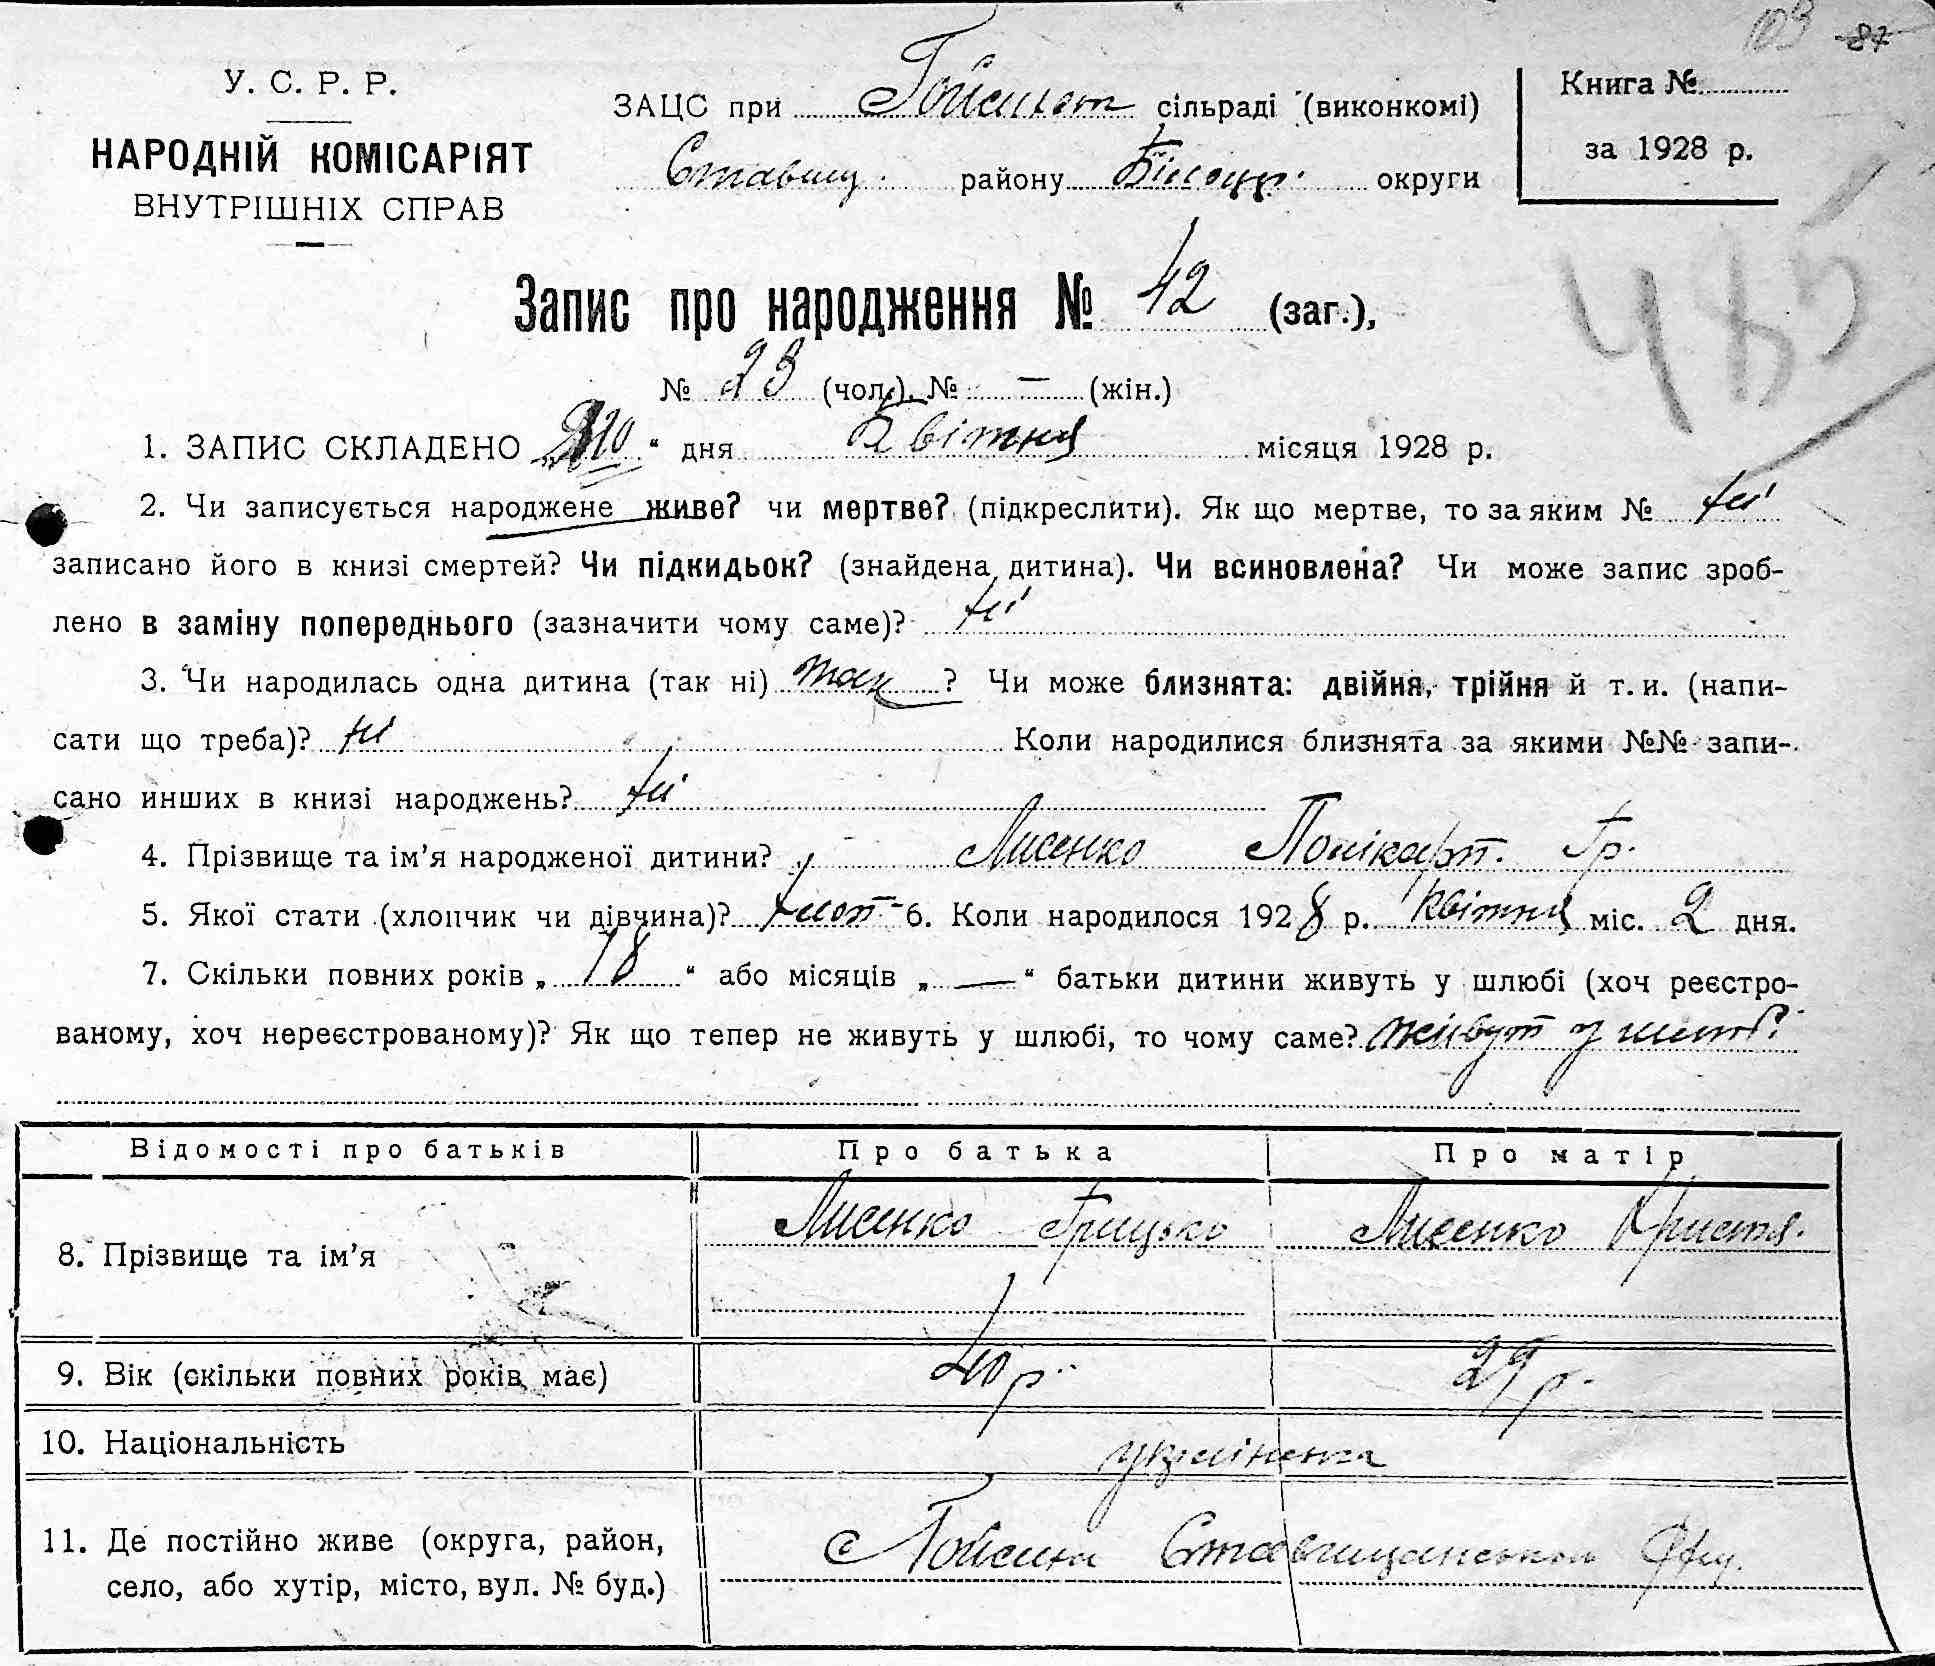 103 87
У. С. Р. Р.
НАРОДНІЙ КОМІСАРІЯТ
ВНУТРІШНІХ СПРАВ
ЗАЦС при сільраді (виконкомі)
Ставищ. району Білоцер. округи
Книга №
за 1928 р.
Запис про народження № 42 (заг.),
№ 23 (чол.), № — (жін.)
1. ЗАПИС СКЛАДЕНО „10“ дня Квітня місяця 1928 р.
2. Чи записується народжене живе? чи мертве? (підкреслити). Як що мертве, то за яким № ні
записано його в книзі смертей? Чи підкидьок? (знайдена дитина). Чи всиновлена? Чи може запис зроб-
лено в заміну попереднього (зазначити чому саме)? ні
3. Чи народилась одна дитина (так ні) так ? Чи може близнята: двійня, трійня й т. и. (напи-
сати що треба)? ні Коли народилися близнята за якими №№ запи-
сано инших в книзі народжень? ні
4. Прізвище та ім'я народженої дитини? Лисенко Полікарп. Гр.
5. Якої стати (хлопчик чи дівчина)? хлоп 6. Коли народилося 1928 р. Квітня міс. 2 дня.
7. Скільки повних років „ 18 “ або місяців „ — “ батьки дитини живуть у шлюбі (хоч реєстро-
ваному, хоч нереєстрованому)? Як що тепер не живуть у шлюбі, то чому саме? живут у шлюбі
Відомості про батьків Про батька Про матір
8. Прізвище та ім'я Лисенко Грицько Лисенко Христя.
9. Вік (скільки повних років має) 40 р. 29 р.
10. Національність українека
11. Де постійно живе (округа, район,
село, або хутір, місто, вул. № буд.)
с Ставищанського р-ну.